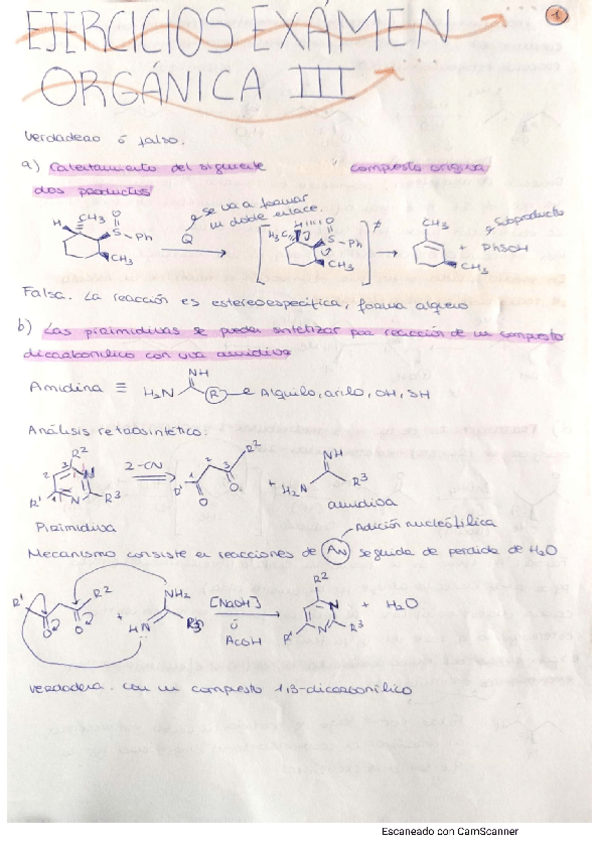 EJERCICIOS EXÁMEN
1
ORGÁNICA III
Verdadero ó falso.
a) Calentamiento del siguiente compuesto origina
dos productos
se va a formar
un doble enlace.
H CH3 O S Ph CH3
Q
H CH3 O S Ph CH3 ≠
CH3 CH3 + PhSOH
Subproducto
Falsa. La reacción es estereoespecífica, forma alqueno
b) Las pirimidinas se pueden sintetizar por reacción de un compuesto
dicarbonílico con una amidina
Amidina ≡ H2N NH R Alquilo, arilo, OH, SH
Análisis retrosintético:
R2 3 2 1 N N R' R3
2-CN
R' 1 2 3 R2 O O + H2N NH R3
Pirimidina
amidina
Adición nucleófilica
Mecanismo consiste en reacciones de AN seguida de perdida de H2O
R' O O R2 + NH2 HN R3 [NaOH] ó AcOH R2 N N R' R3 + H2O
Verdadera. Con un compuesto 1,3-dicarbonílico
Escaneado con CamScanner